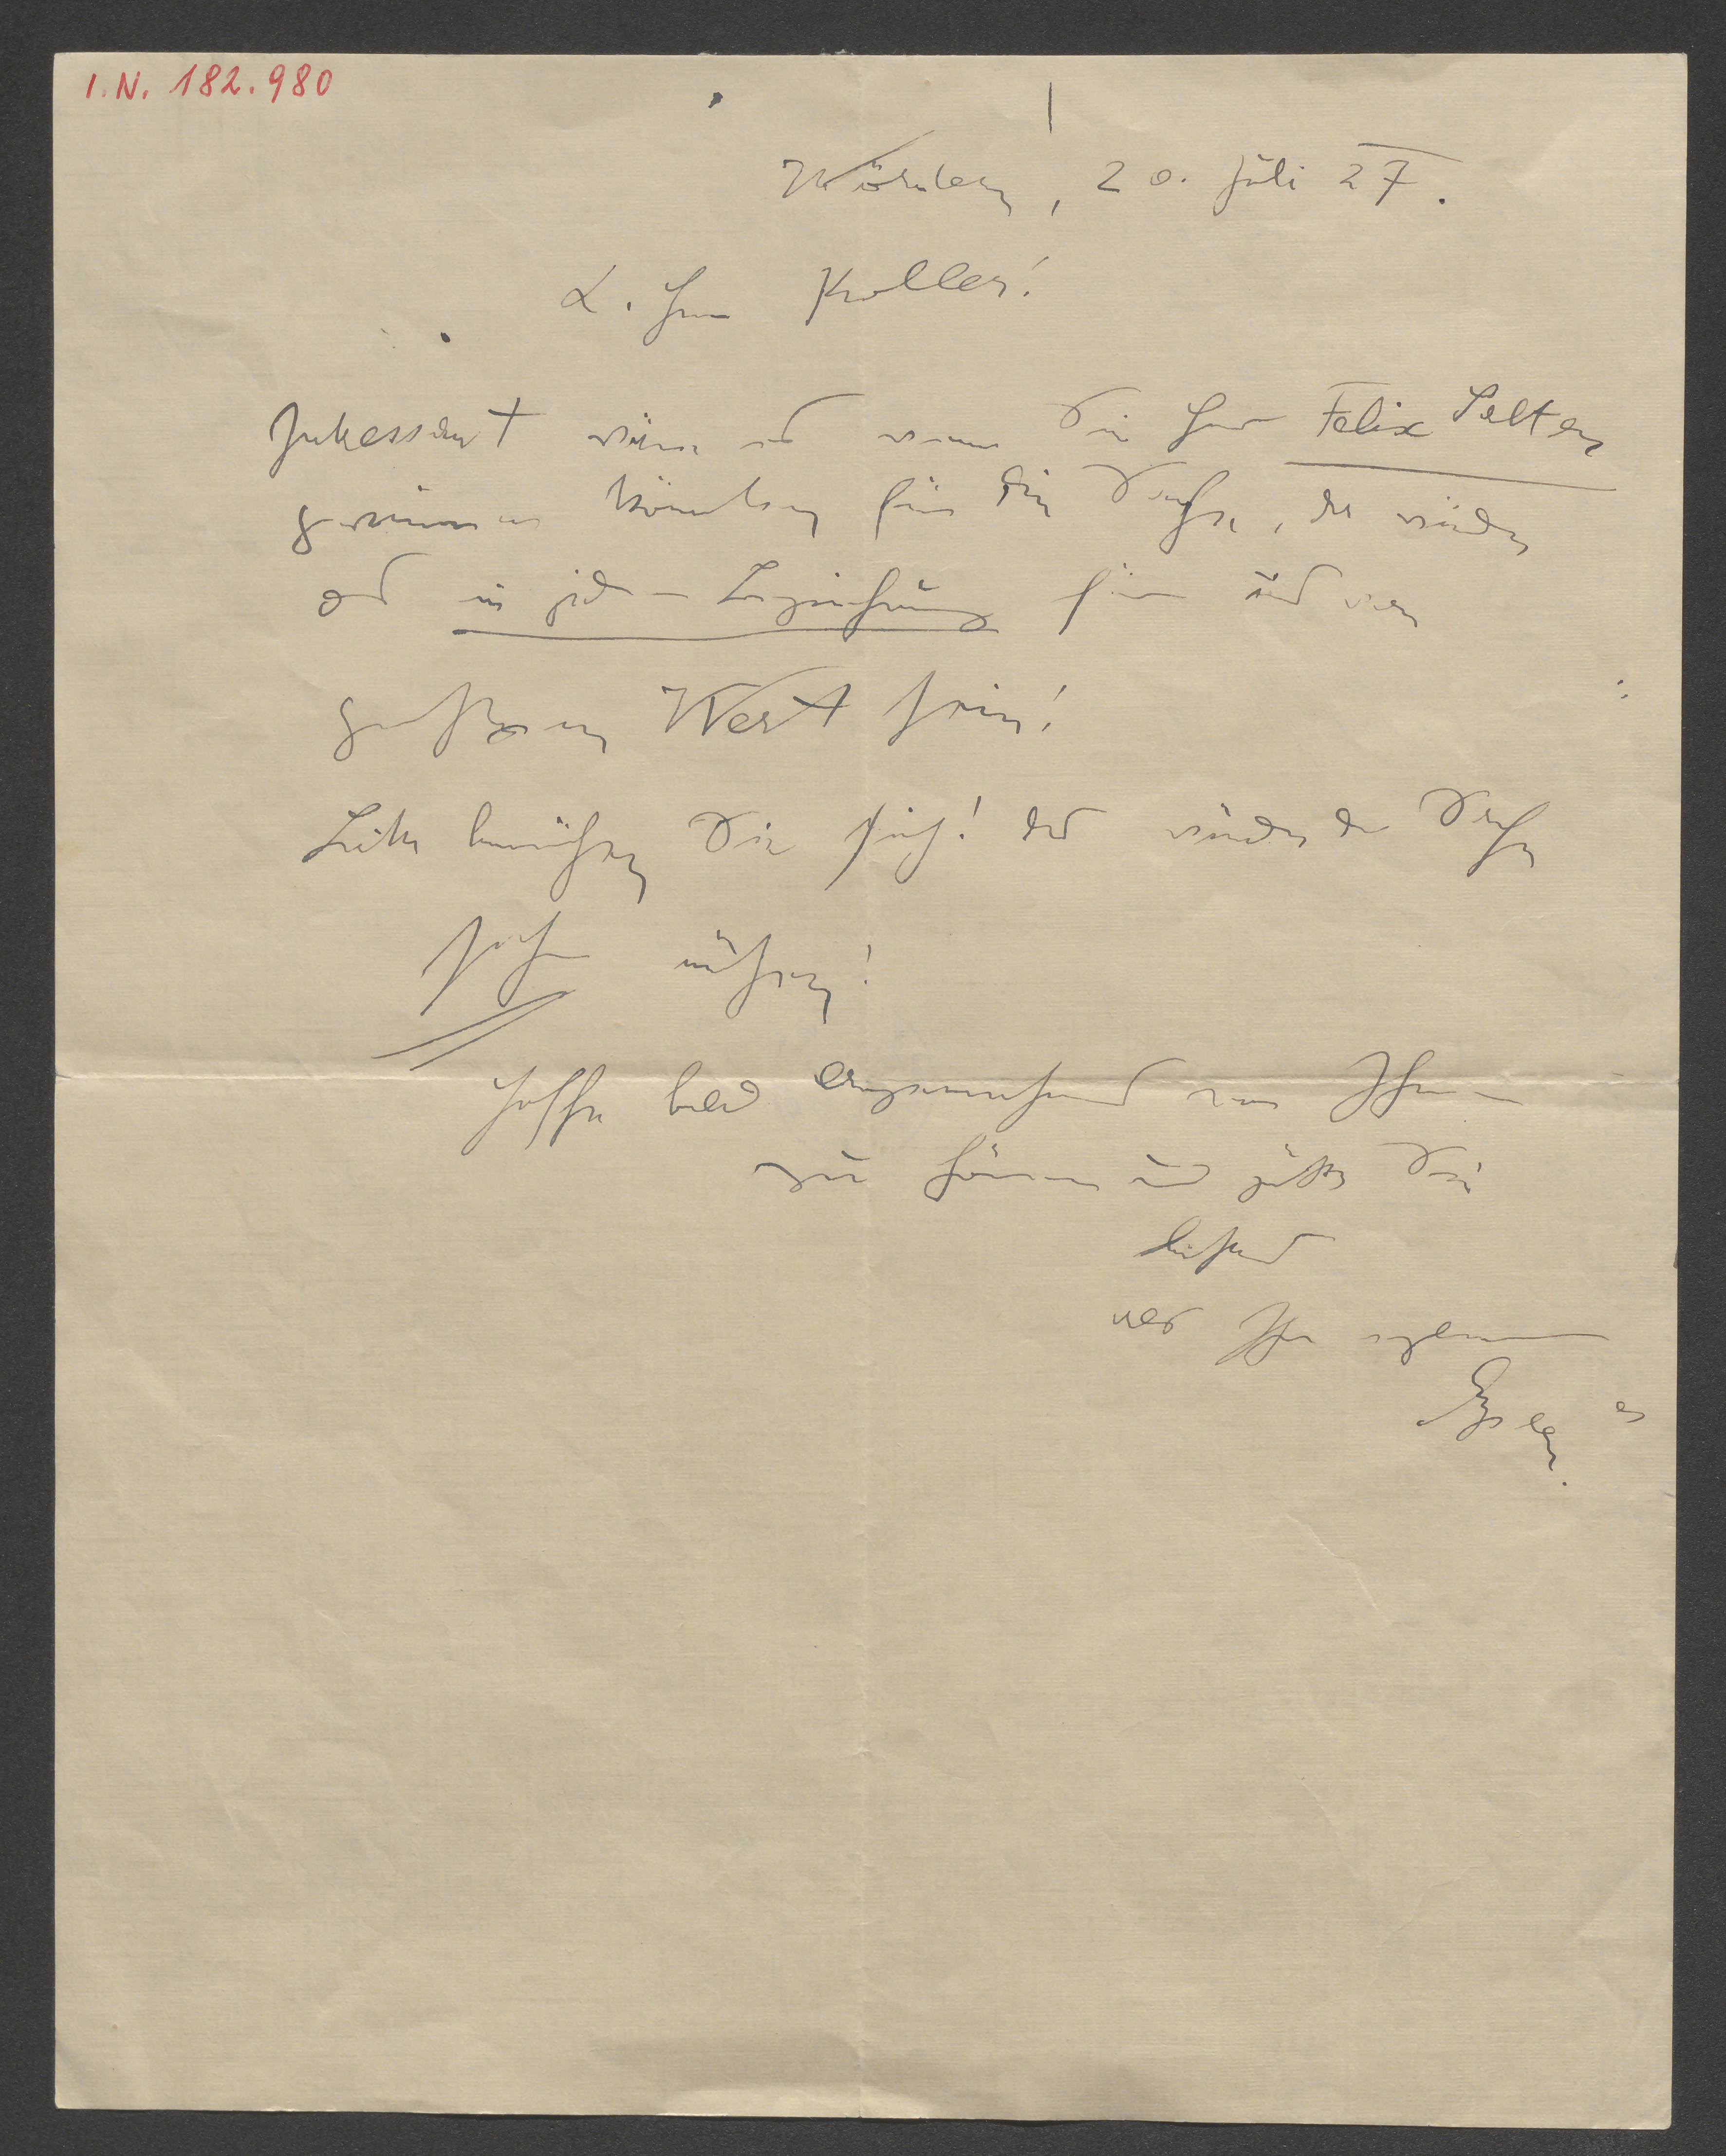 I.N. 182.980
Wördern, 20. Juli 27.
L. Herr Koller!
Interessant wäre es wenn Sie Herrn Felix Salten
gewinnen könnten für die Sache, das würde
in jeder Beziehung für uns von
großem Wert sein!
Bitte bemühen Sie sich! das würde der Sache
sehr nützen!
Hoffe bald von Ihnen
zu hören und grüße Sie
bestens
als Ihr ergebener
Eysler